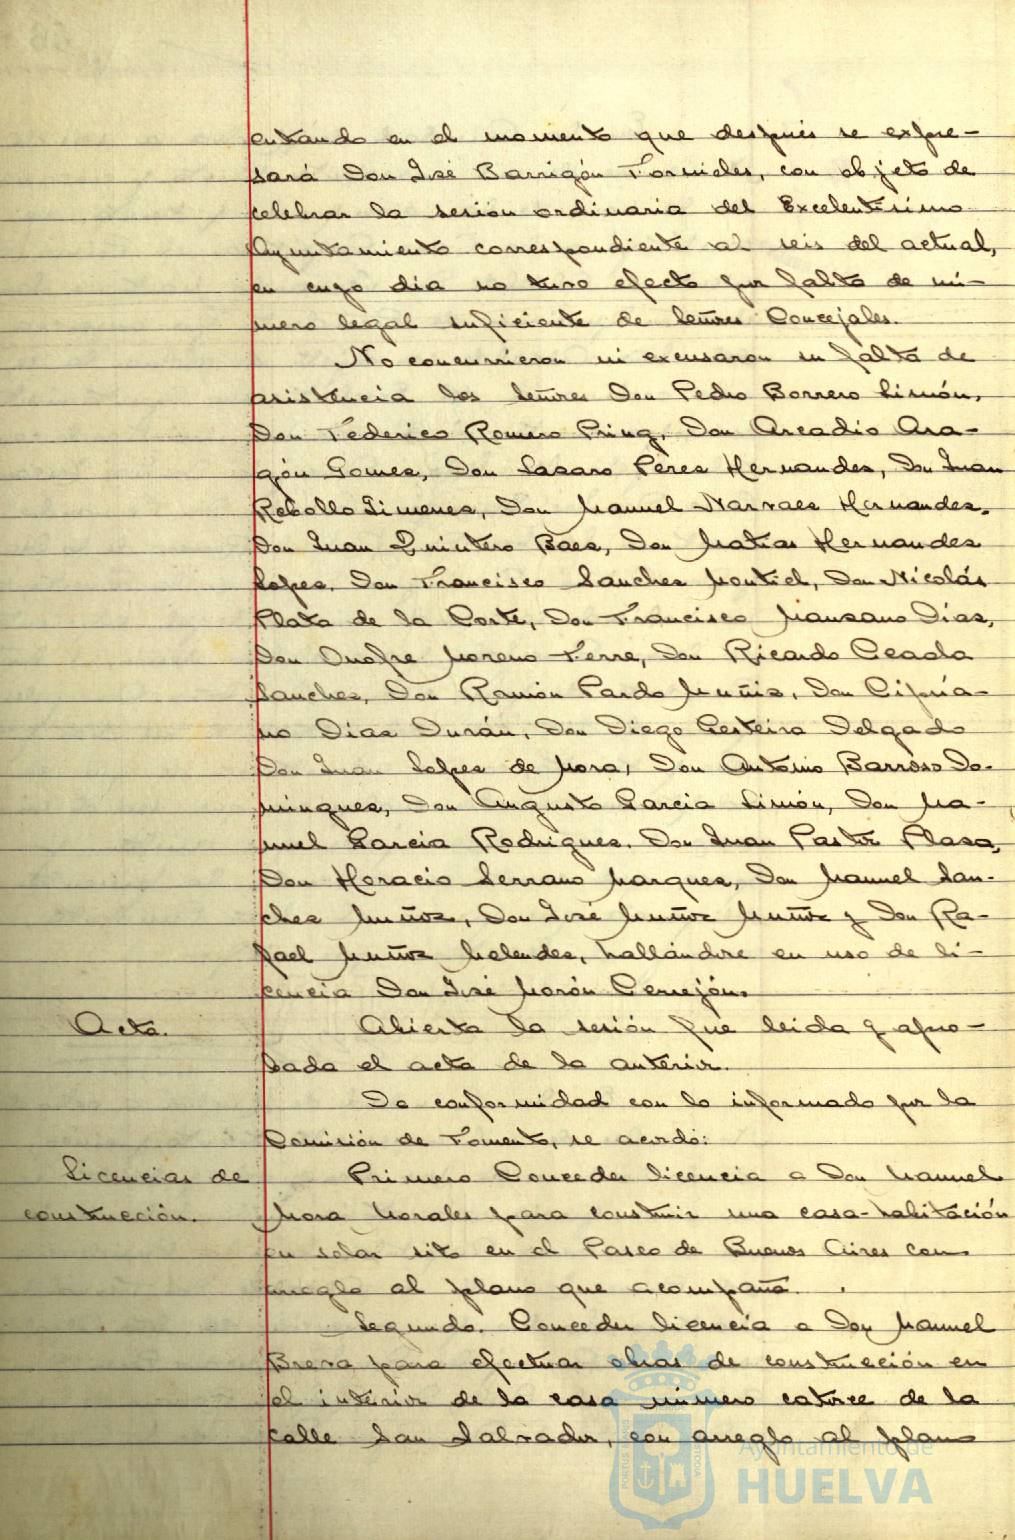 entrando en el momento que después se expre-
sará Don José Barrigón Fornieles, con objeto de
celebrar la sesión ordinaria del Excelentísimo
Ayuntamiento correspondiente al seis del actual,
en cuyo día no tuvo efecto por falta de nú-
mero legal suficiente de Señores Concejales.
No concurrieron ni excusaron su falta de
asistencia los Señores Don Pedro Borrero Limón,
Don Federico Romero Pring, Don Arcadio Ara-
gón Gomez, Don Lazaro Perez Hernandez, Don Juan
Rebollo Jimenez, Don Manuel Narvaez Hernandez,
Don Juan Quintero Baez, Don Matias Hernandez
Lopez, Don Francisco Sanchez Montiel, Don Nicolás
Plata de la Corte, Don Francisco Manzano Diaz,
Don Onofre Moreno Ferre, Don Ricardo Ceada
Sanchez, Don Ramón Pardo Muñiz, Don Cipria-
no Diaz Durán, Don Diego Gesteira Delgado
Don Juan Lopez de Mora, Don Antonio Barroso Do-
minguez, Don Augusto Garcia Limón, Don Ma-
nuel Garcia Rodriguez, Don Juan Pastor Plaza,
Don Horacio Serrano Marquez, Don Manuel San-
chez Muñoz, Don José Muñoz Muñoz y Don Ra-
fael Muñoz Melendez, hallándose en uso de li-
cencia Don José Morón Cerrejón.
Acta.
Abierta la sesión fue leida y apro-
bada el acta de la anterior.
De conformidad con lo informado por la
Comisión de Fomento, se acordó:
Licencias de
construcción.
Primero Conceder licencia a Don Manuel
Mora Morales para construir una casa-habitación
en solar sito en el Paseo de Buenos Aires con
arreglo al plano que acompaña.
Segundo. Conceder licencia a Don Manuel
Brera para efectuar obras de construcción en
el interior de la casa número catorce de la
calle San Salvador, con arreglo al plano
Ayuntamiento de
HUELVA